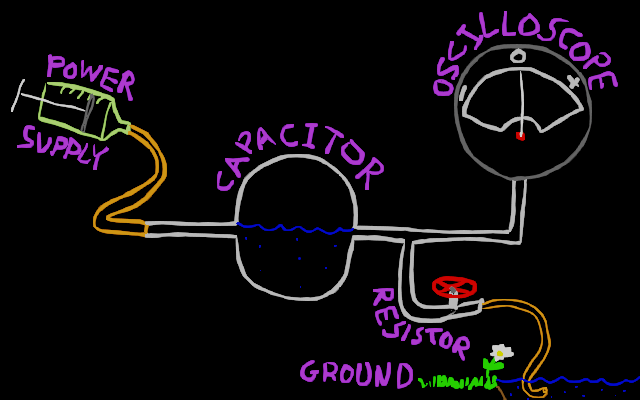 POWER
SUPPLY
CAPACITOR
OSCILLOSCOPE
- 0 +
RESISTOR
GROUND